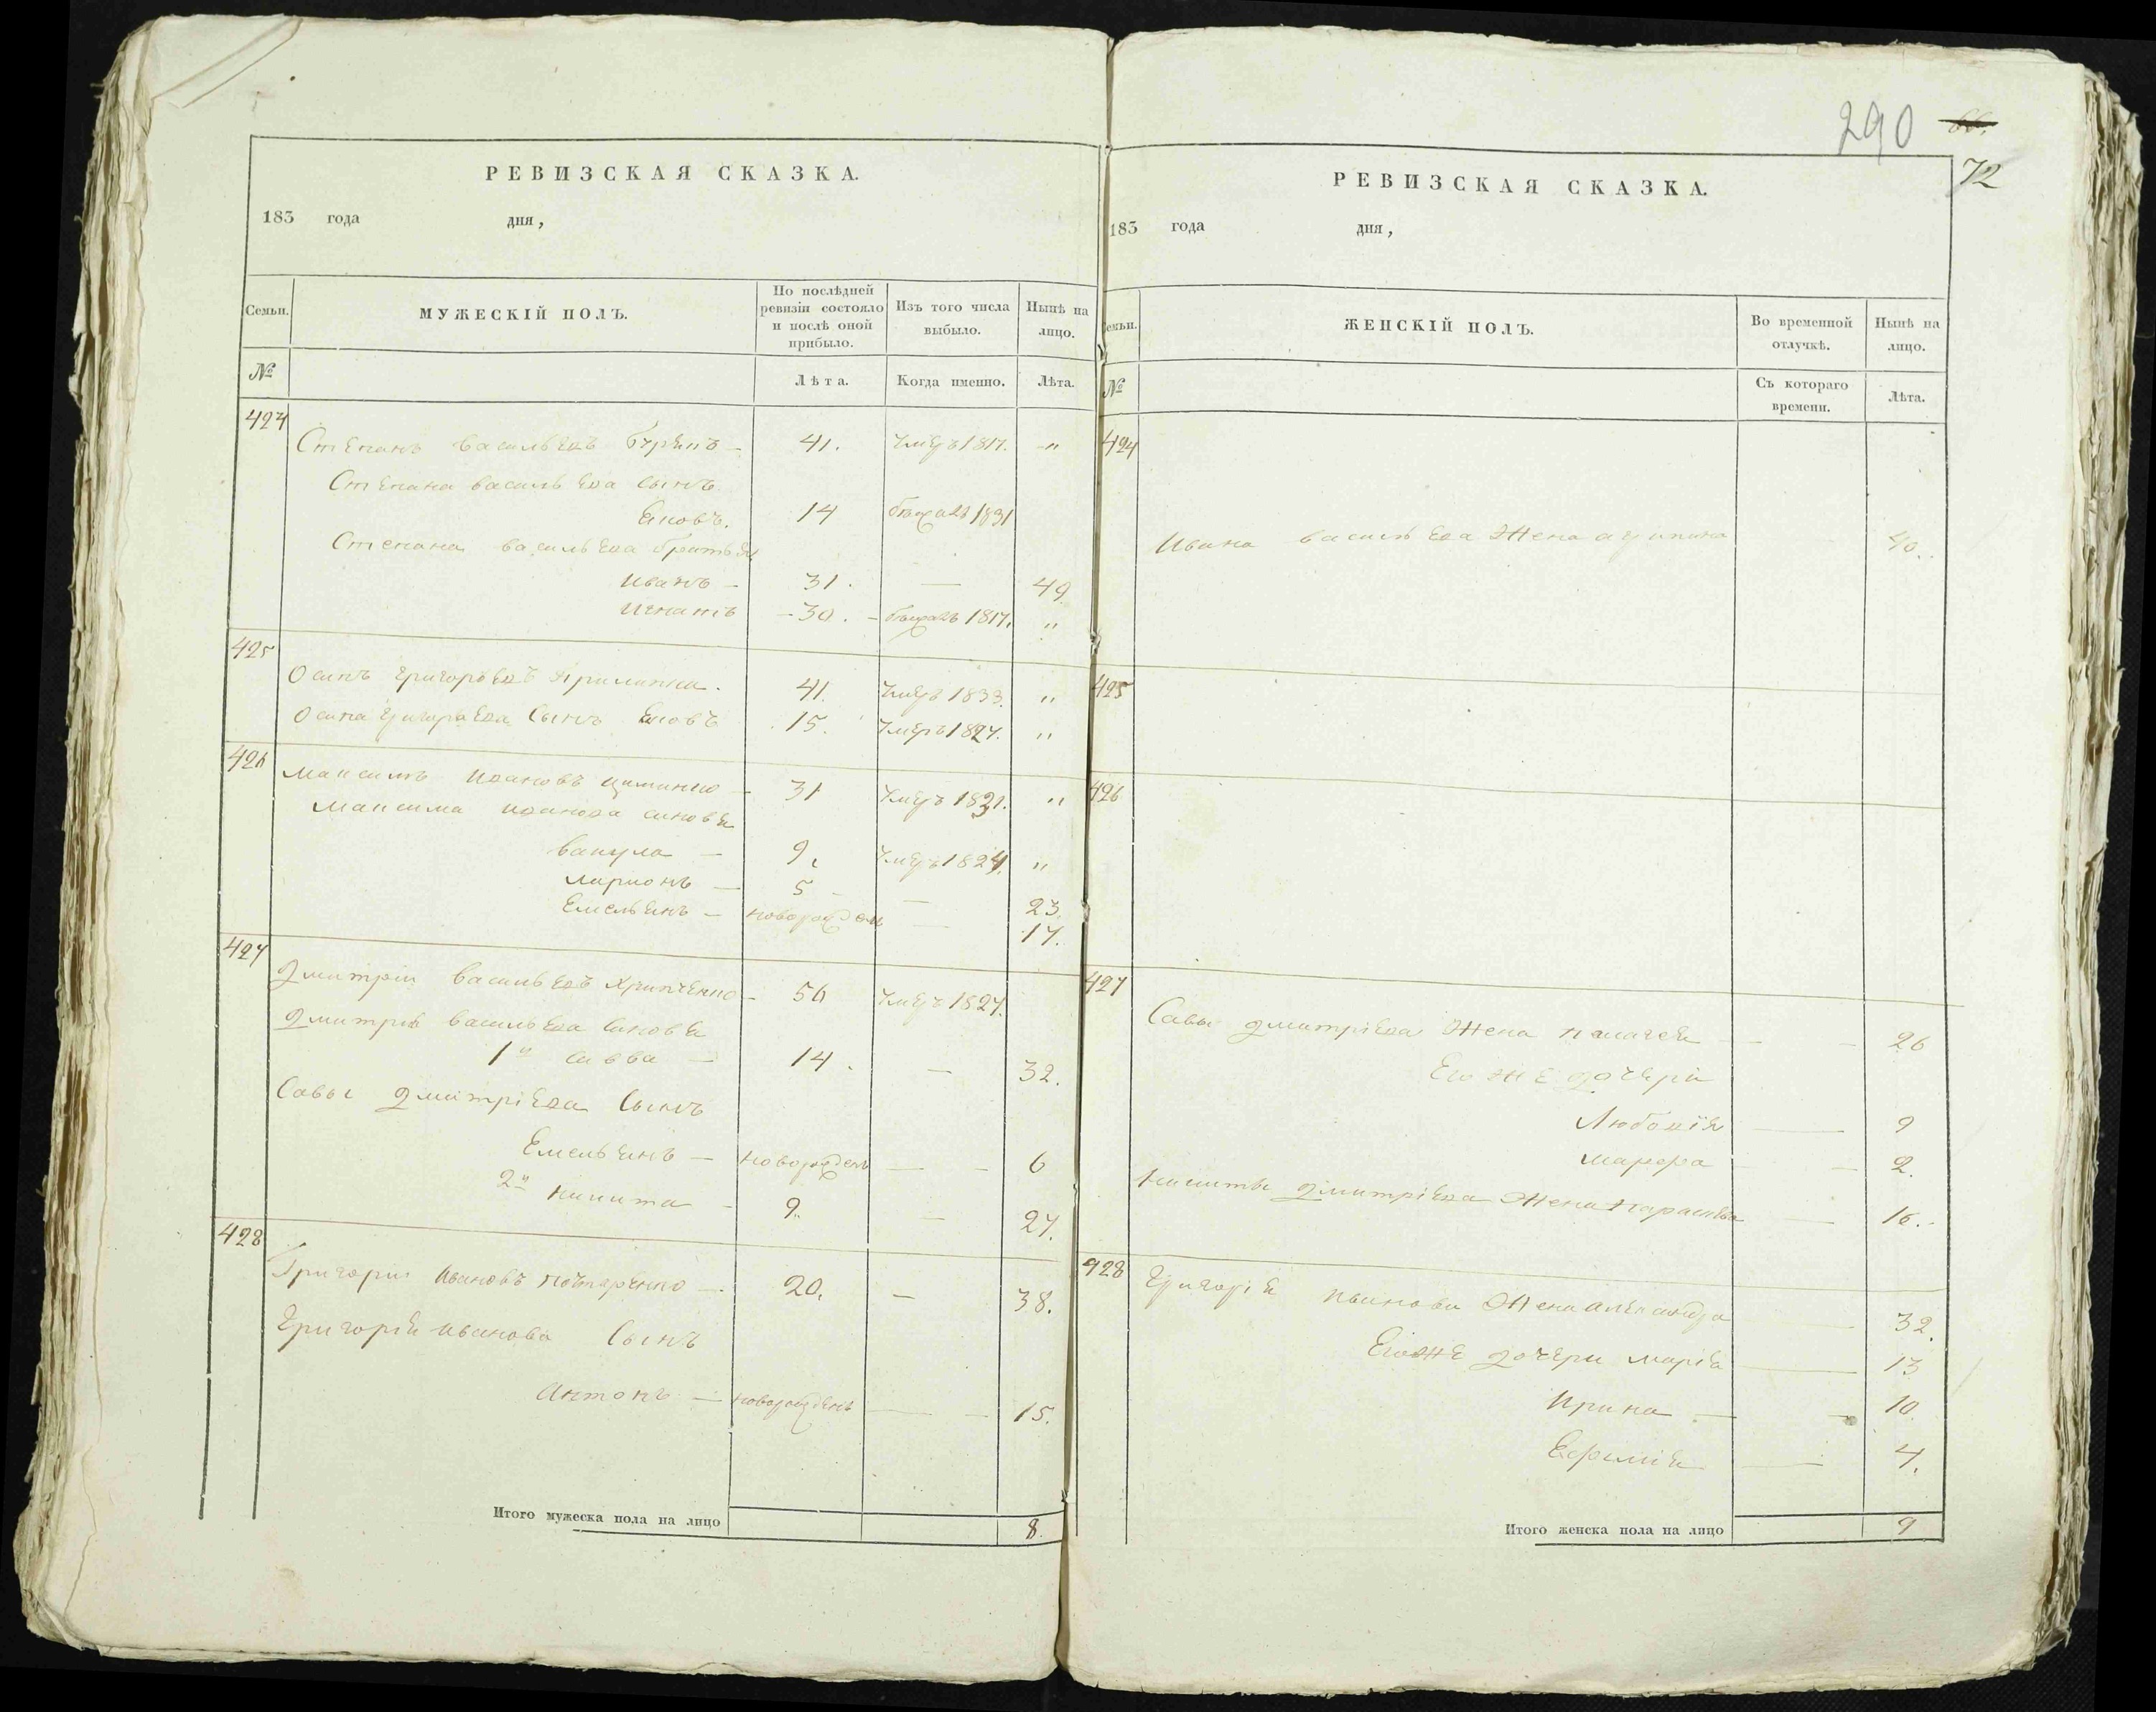 290
66.
72
РЕВИЗСКАЯ СКАЗКА.
183 года дня,
Семьи. МУЖЕСКІЙ ПОЛЪ. По послѣдней ревизіи состояло и послѣ оной прибыло. Изъ того числа выбыло. Нынѣ на лицо.
№ Лѣта. Когда именно. Лѣта.
424
Степанъ васильевъ 41. умеръ 1817. "
Степана васильева сынъ
яковъ. 14 бежалъ 1831
Степана васильева братья
иванъ – 31. — 49.
игнатъ – 30. – бежалъ 1817. "
425
Осипъ григорьевъ 41. умеръ 1833. "
осипа григорьева сынъ яковъ 15. умеръ 1827. "
426
Максимъ ивановъ – 31 умеръ 1831. "
Максима иванова синовья
вакула — 9. умеръ 1824. "
ларионъ — 5 – — 23.
Емельянъ – новорожденъ — 17.
427
дмитрій васильевъ – 56 умеръ 1827.
дмитрія васильева синовья
1й савва — 14. — 32.
Савы дмитріева сынъ
Емельянъ — новорожденъ — – 6
2й никита – 9. — 27.
428
Григорій ивановъ — 20. – 38.
григорія иванова сынъ
антонъ — новорожденъ — – 15.
Итого мужеска пола на лицо 8.
РЕВИЗСКАЯ СКАЗКА.
183 года дня,
Семьи. ЖЕНСКІЙ ПОЛЪ. Во временной отлучкѣ. Нынѣ на лицо.
№ Съ котораго времени. Лѣта.
424
ивана васильева жена агрипина 40.
425
426
427
Савы дмитріева жена пелагея — – 26
Его же дочери
Любовія — 9
марфа — – 2.
никиты дмитріева жена параскева — 16.
428
григорія иванова жена александра — 32.
Его же дочери марія — 13
Ирина — – 10.
Ефимія — 4.
Итого женска пола на лицо 9